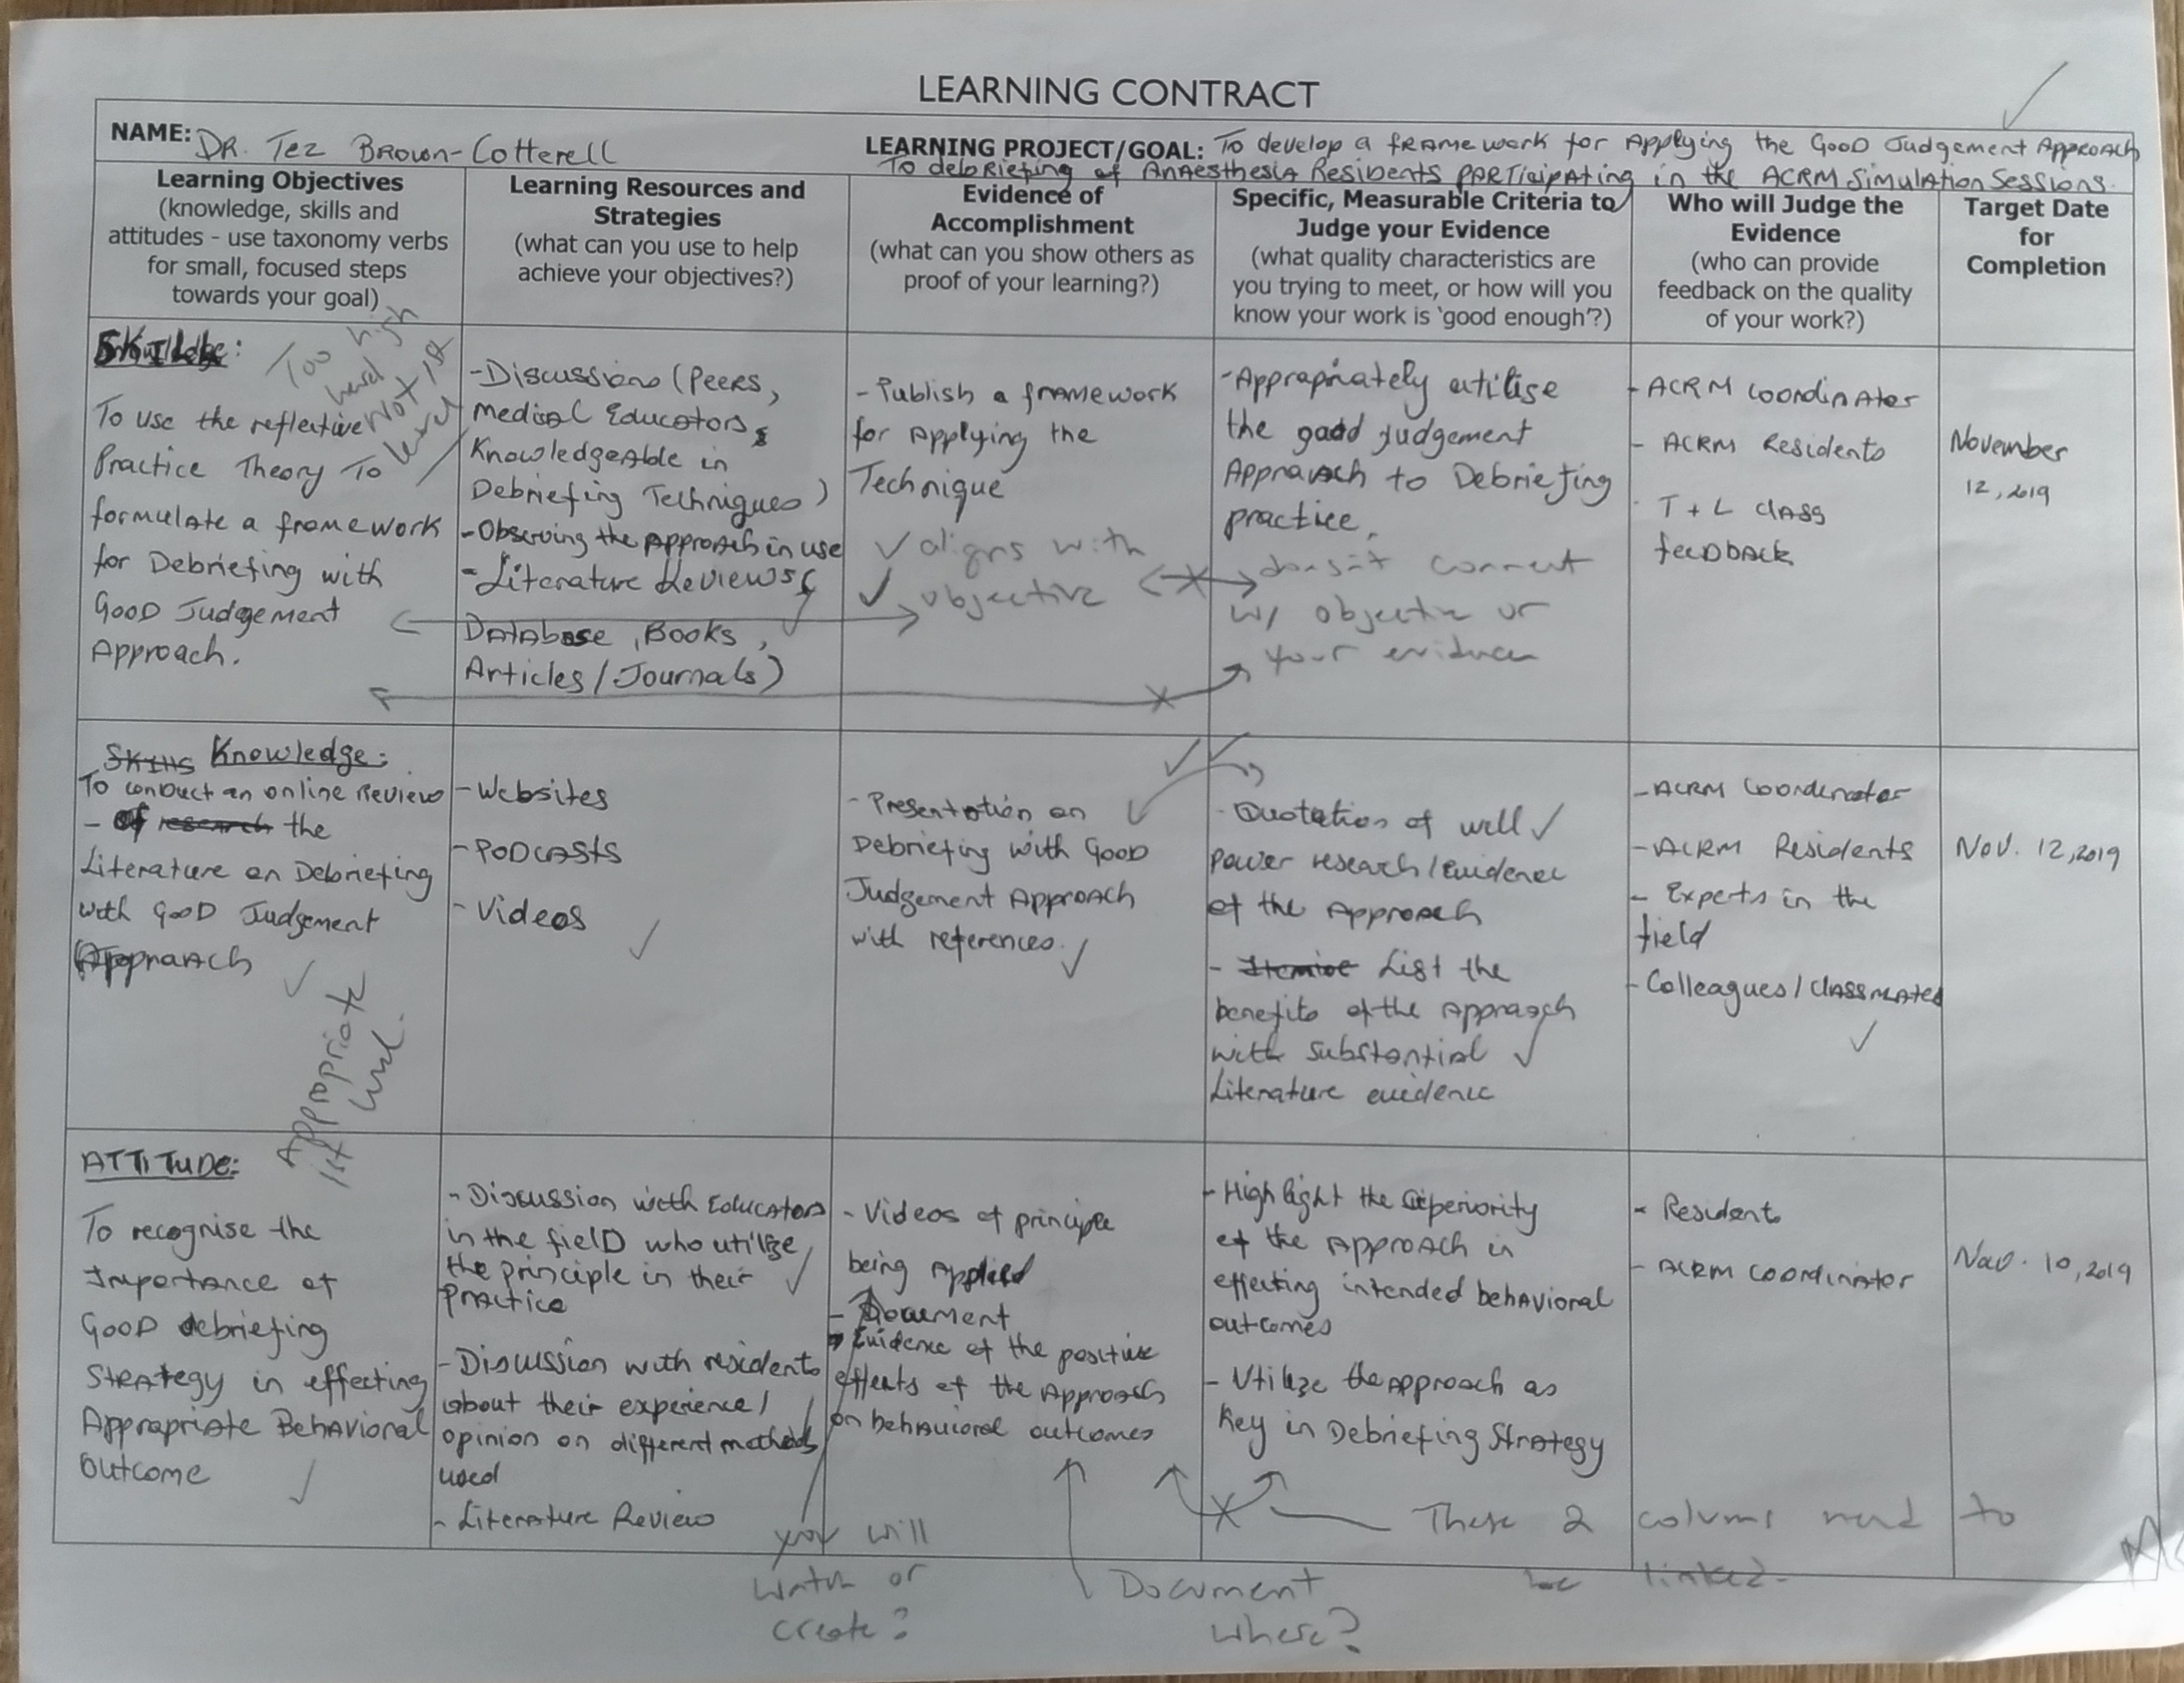 LEARNING CONTRACT
NAME: DR. Tez Brown-Cotterell
LEARNING PROJECT/GOAL: To develop a framework for Applying the Good Judgement Approach
To debriefing of Anaesthesia Residents participating in the ACRM Simulation Sessions.
Learning Objectives
(knowledge, skills and
attitudes - use taxonomy verbs
for small, focused steps
towards your goal)
Learning Resources and
Strategies
(what can you use to help
achieve your objectives?)
Evidence of
Accomplishment
(what can you show others as
proof of your learning?)
Specific, Measurable Criteria to
Judge your Evidence
(what quality characteristics are
you trying to meet, or how will you
know your work is 'good enough'?)
Who will Judge the
Evidence
(who can provide
feedback on the quality
of your work?)
Target Date
for
Completion
SKILL:
To use the reflective
Practice Theory To
formulate a framework
for Debriefing with
Good Judgement
Approach.
Too high
level
Not 1st
level
-Discussions (Peers,
Medical Educators
Knowledgeable in
Debriefing Techniques)
-Observing the Approach in use
-Literature Reviews (
Database, Books,
Articles/Journals)
-Publish a framework
for Applying the
Technique
✓ aligns with
✓ objective
-Appropriately utilise
the good judgement
Approach to Debriefing
practice.
doesn't connect
w/ objective or
your evidence
- ACRM Coordinator
- ACRM Residents
- T + L class
feedback
November
12, 2019
Skills Knowledge:
To conduct an online Review
- of research the
Literature on Debriefing
with Good Judgement
Approach ✓
Appropriate
1st level.
-Websites
-Podcasts
-Videos ✓
- Presentation on
Debriefing with Good
Judgement Approach
with references. ✓
- Quotation of well ✓
power research/Evidence
of the Approach
- Itemise List the
benefits of the Approach
with substantial ✓
Literature evidence
-ACRM Coordinator
-ACRM Residents
- Experts in the
field
- Colleagues/classmates
✓
Nov. 12, 2019
ATTITUDE:
To recognise the
Importance of
Good debriefing
Strategy in effecting
Appropriate Behavioral
Outcome ✓
- Discussion with Educators
in the field who utilize
the principle in their ✓
Practice
-Discussion with residents
about their experience/
opinion on different methods
used
- Literature Review
you will
watch or
create?
- Videos of principle
being Applied
- Document
Evidence of the positive
effects of the Approach
on behavioral outcomes
Document
where?
-Highlight the superiority
of the Approach in
effecting intended behavioral
outcomes
- Utilize the approach as
key in Debriefing Strategy
These 2 columns need to
be linked.
- Residents
- ACRM Coordinator
Nov. 10, 2019